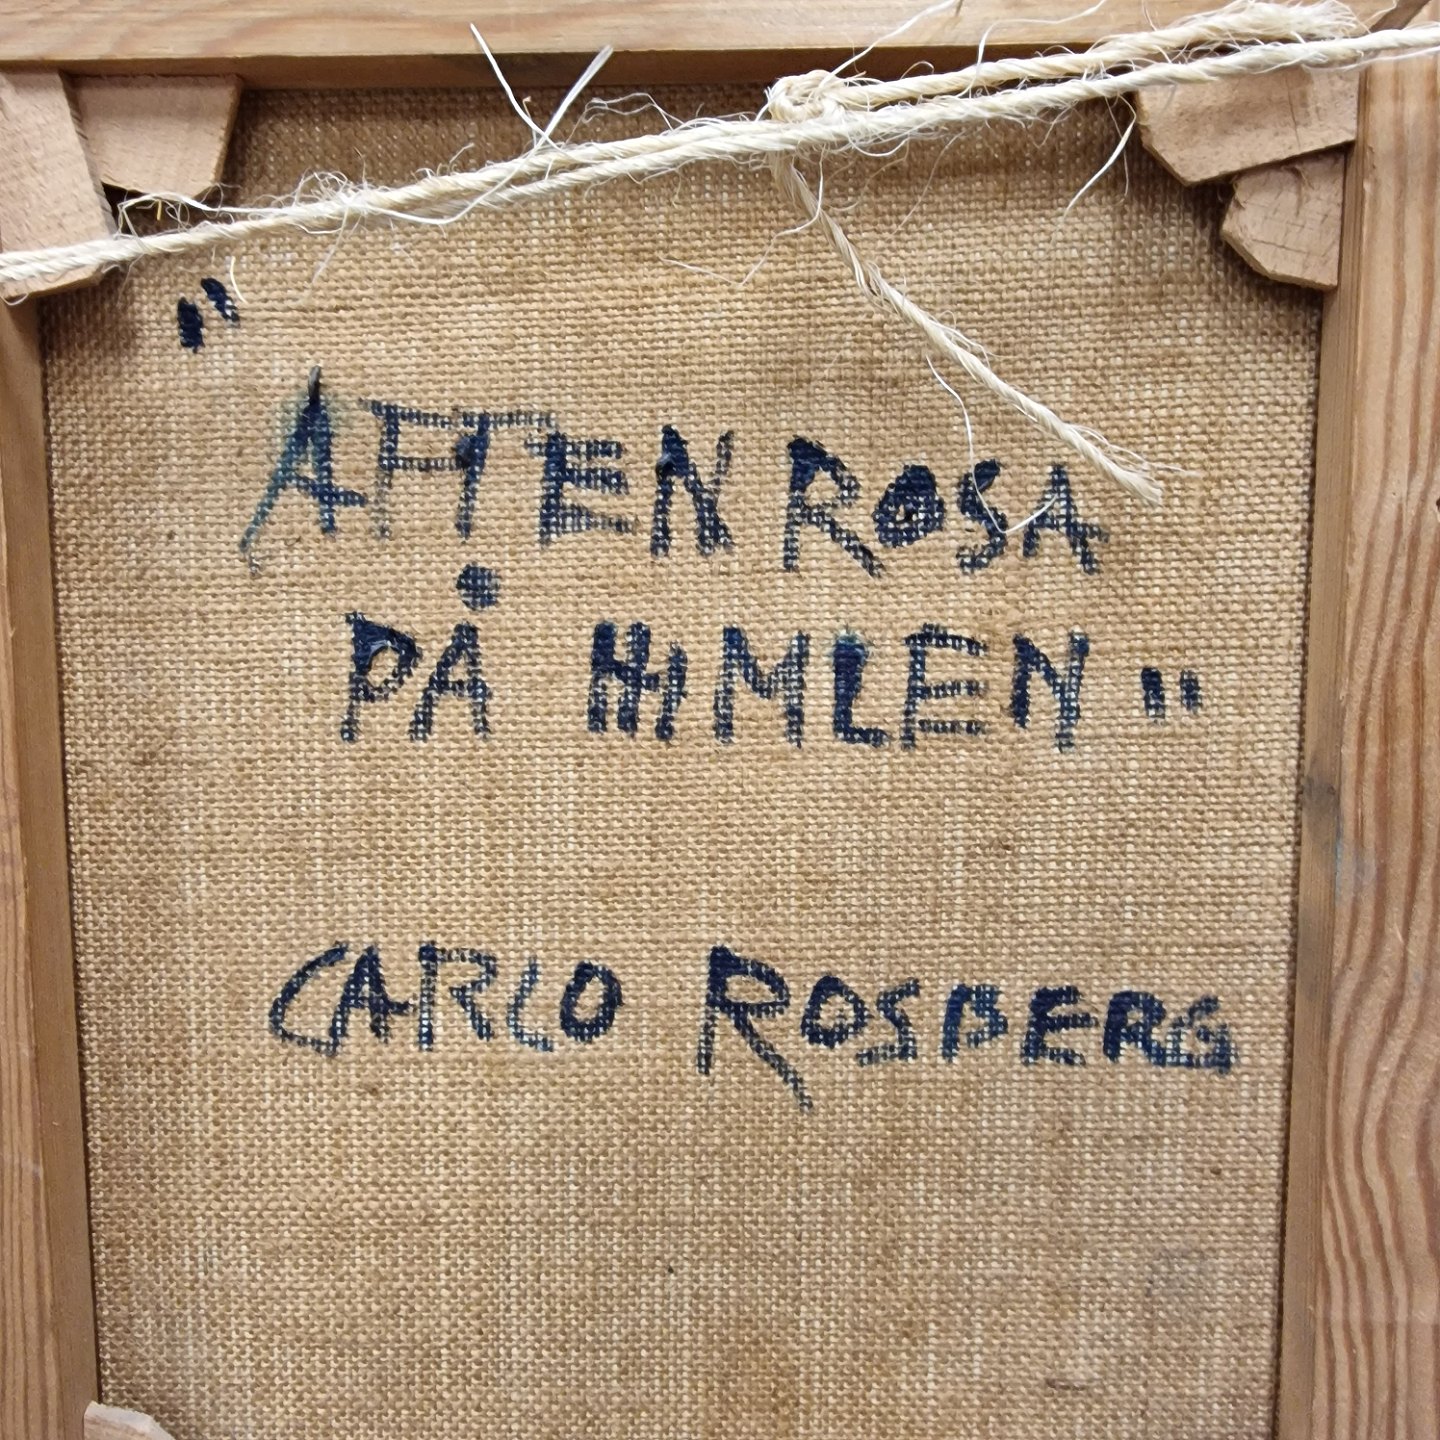 "AFTEN ROSA
PÅ HIMLEN"
CARLO ROSBERG